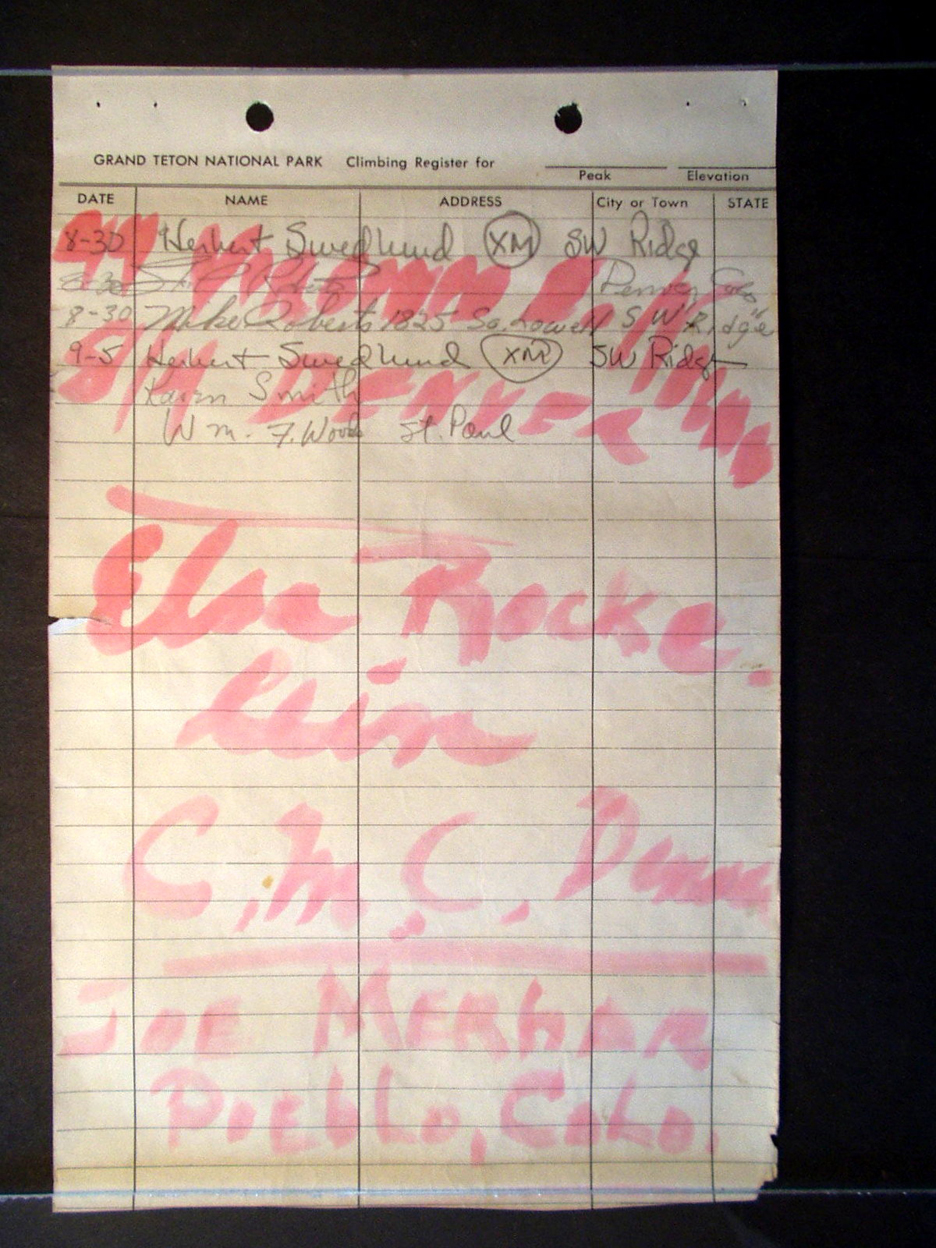 GRAND TETON NATIONAL PARK Climbing Register for
Peak Elevation
DATE NAME ADDRESS City or Town STATE
8-30 Herbert Swedlund XM SW Ridge
8-30 Roberts Denver Colo
8-30 Mike Roberts 1825 So. Lowell SW Ridge
9-5 Herbert Swedlund XM SW Ridge
Karin Smith
Wm. F. Woods St. Paul
DENVER
Elsa Rocke.
lein
C.M.C. Denver
JOE MERHAR
PUEBLO, COLO.